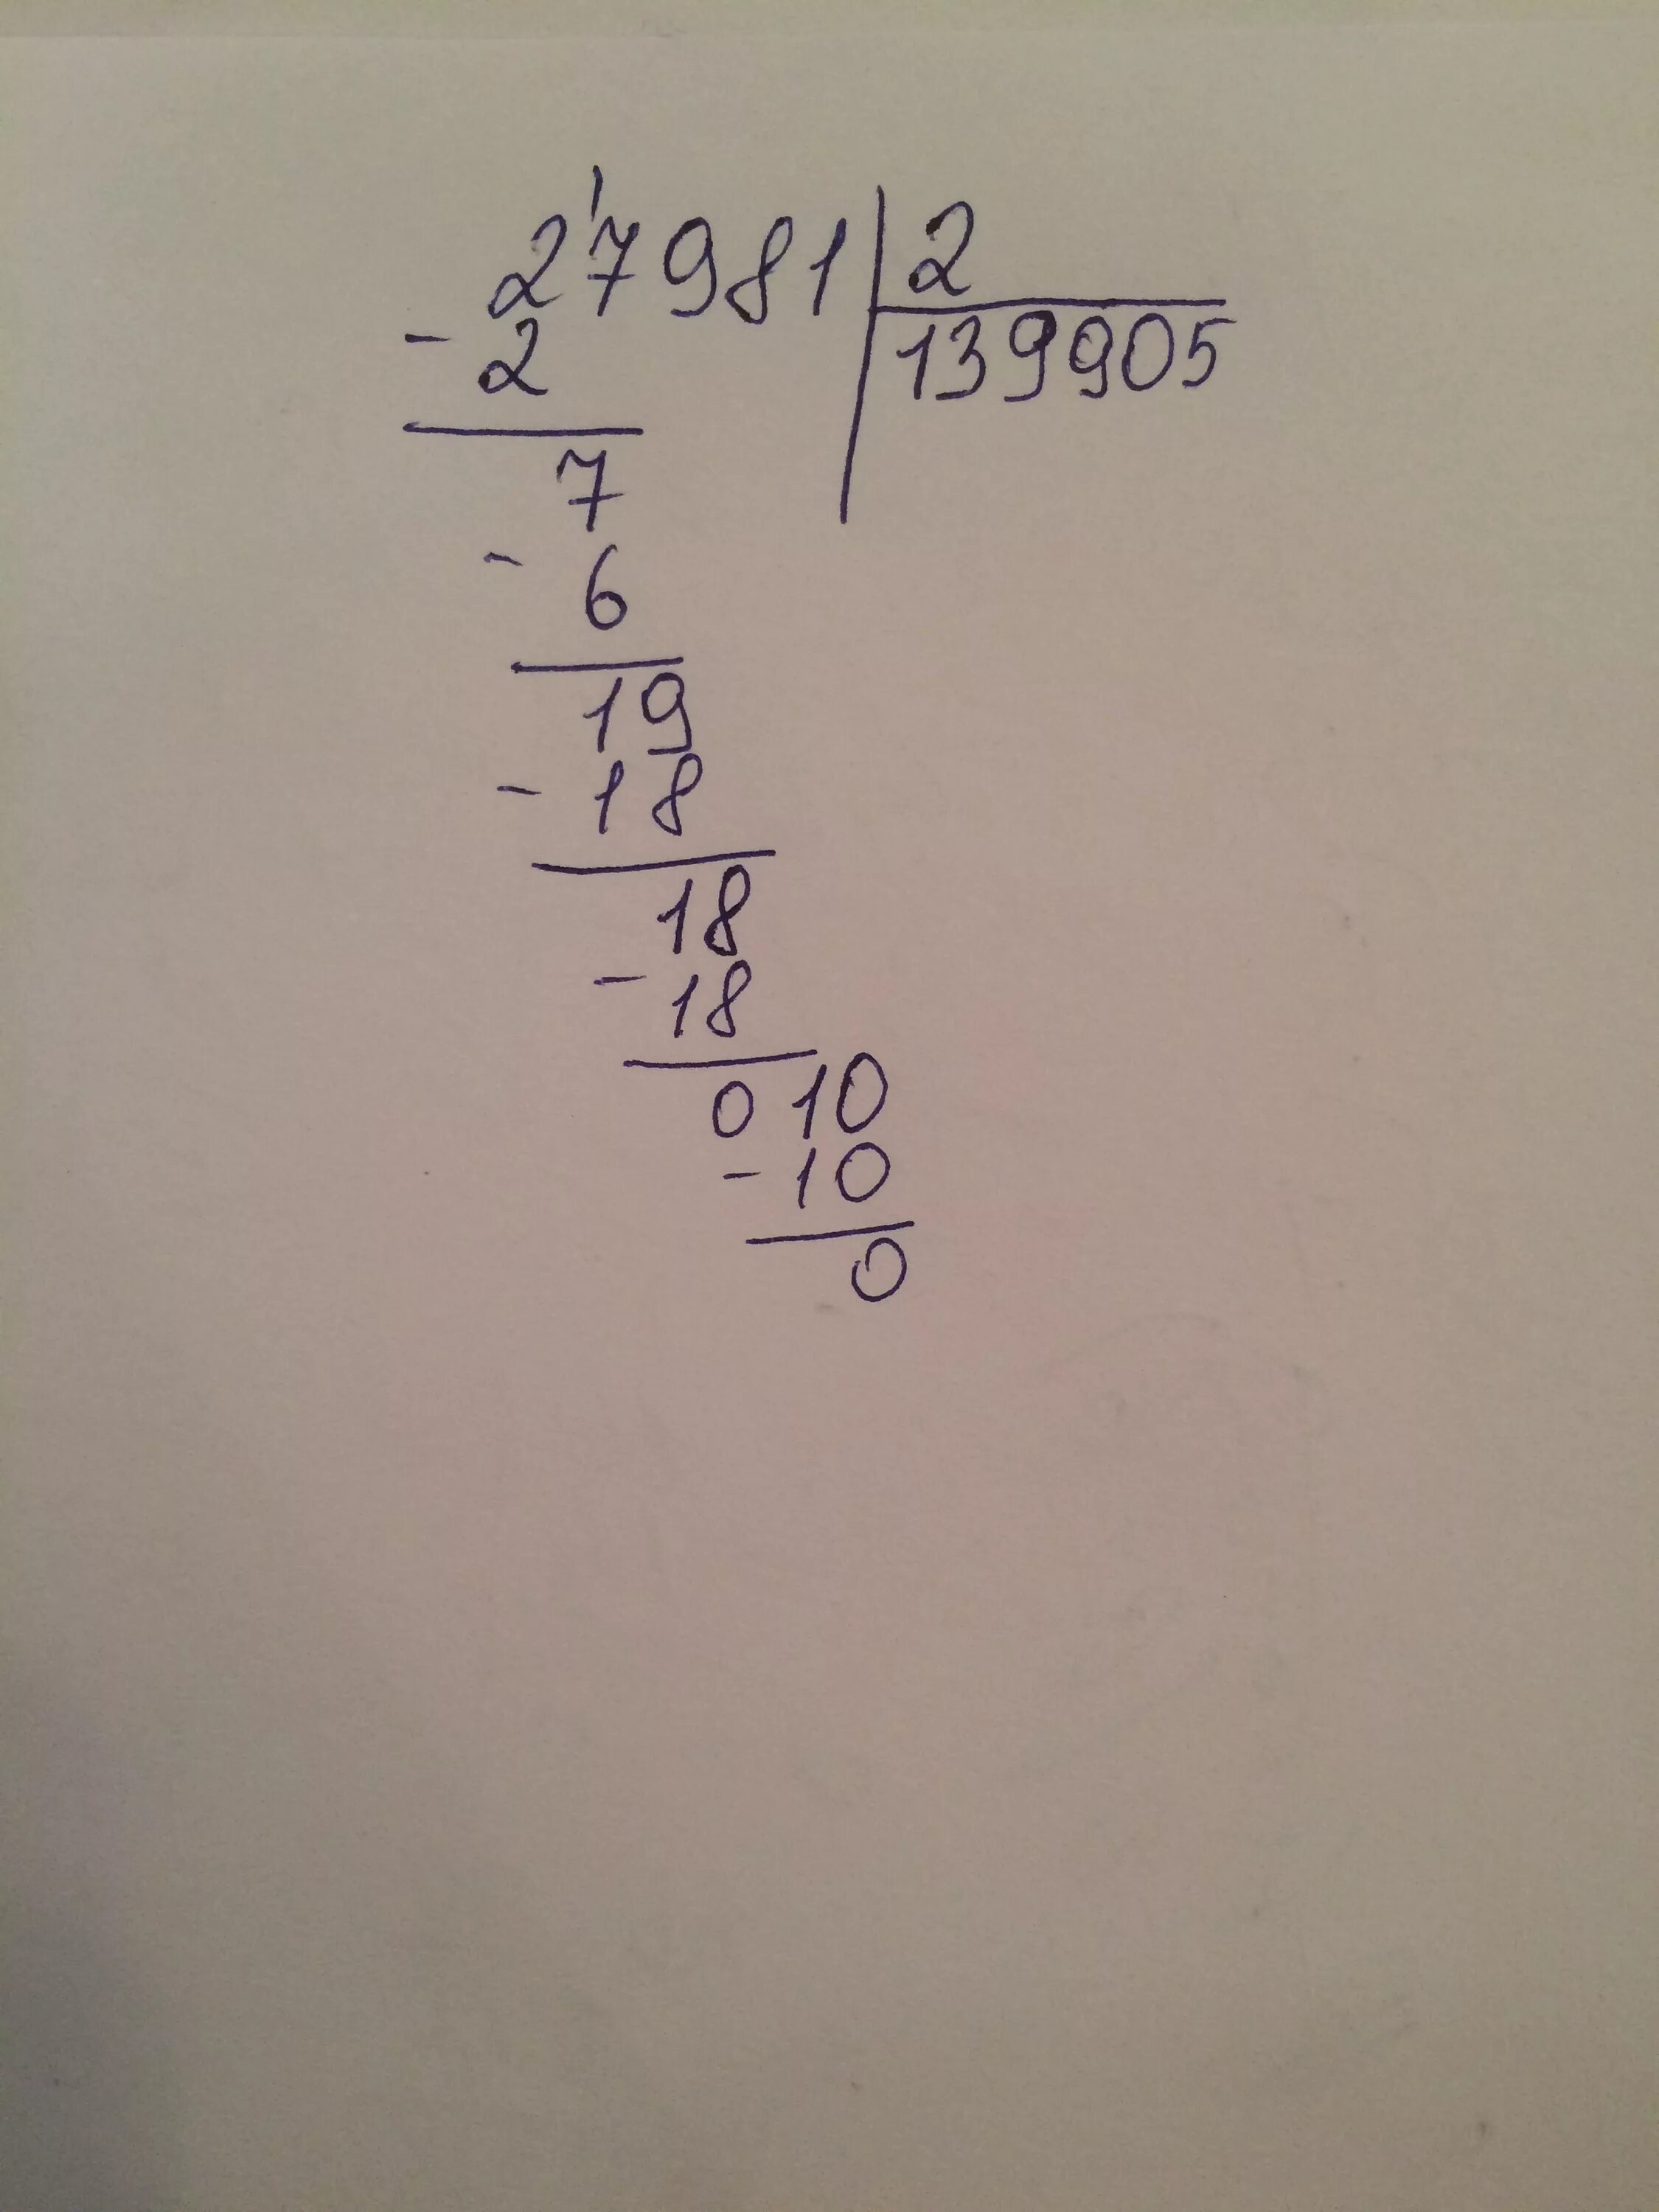 27981 2
- 2 139905
7
- 6
19
- 18
18
- 18
010
- 10
0